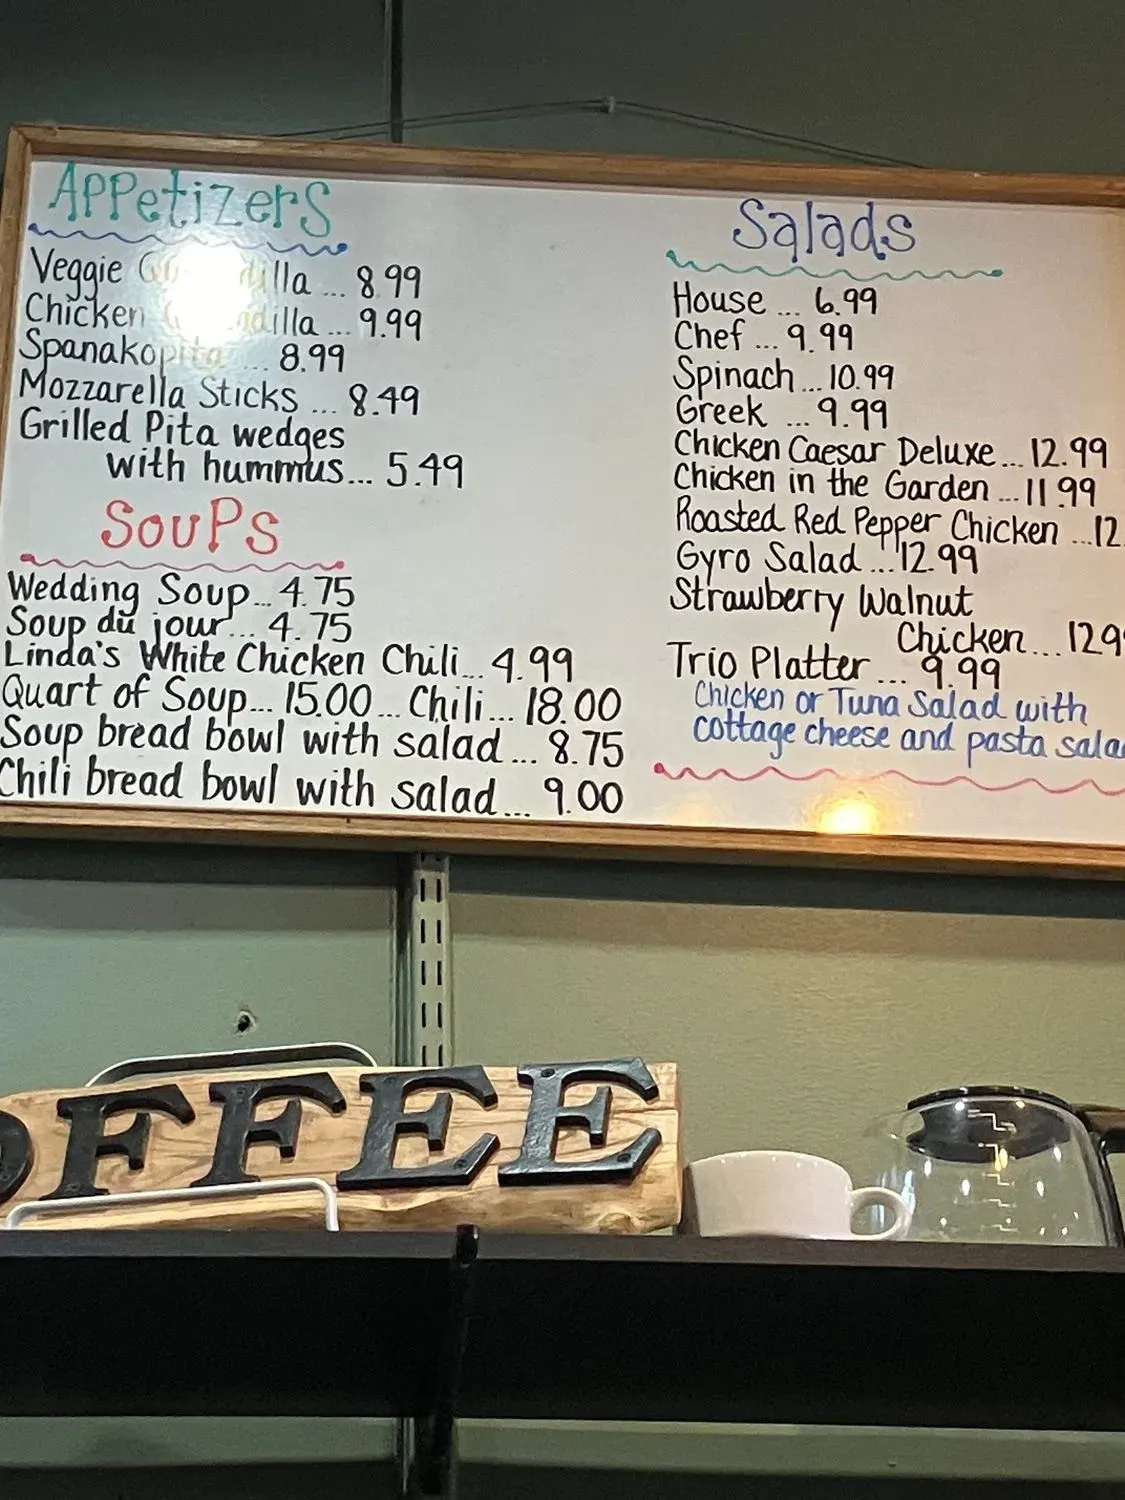 Appetizers
Veggie ... 8.99
Chicken ... 9.99
Spanakopita ... 8.99
Mozzarella Sticks ... 8.49
Grilled Pita wedges
with hummus... 5.49
Soups
Wedding Soup... 4.75
Soup du jour... 4.75
Linda's White Chicken Chili... 4.99
Quart of Soup... 15.00 ... Chili... 18.00
Soup bread bowl with salad... 8.75
Chili bread bowl with salad... 9.00
Salads
House ... 6.99
Chef ... 9.99
Spinach ... 10.99
Greek ... 9.99
Chicken Caesar Deluxe ... 12.99
Chicken in the Garden ... 11.99
Roasted Red Pepper Chicken ... 12.
Gyro Salad ... 12.99
Strawberry Walnut
Chicken ... 12.9
Trio Platter ... 9.99
Chicken or Tuna Salad with
cottage cheese and pasta sala
OFFEE